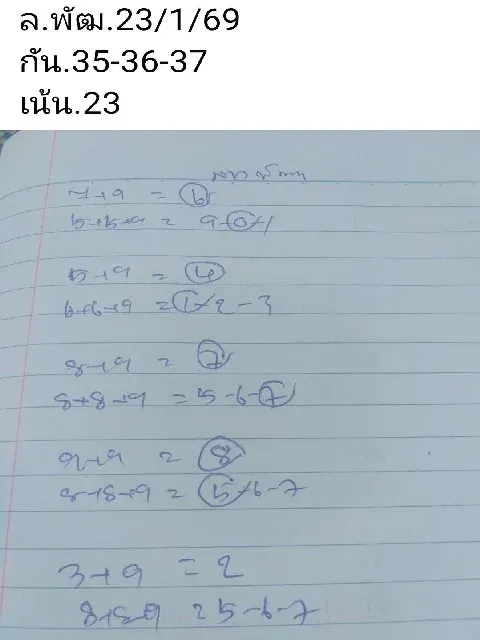 ล.พัฒ.23/1/69
กัน.35-36-37
เน้น.23
7+9 = 6
5+5+9 = 9-0-1
5+9 = 4
6+6+9 = 1-2-3
8+9 = 7
8+8+9 = 5-6-7
9+9 = 8
8+8+9 = 5-6-7
3+9 = 2
8+8-9 = 5-6-7